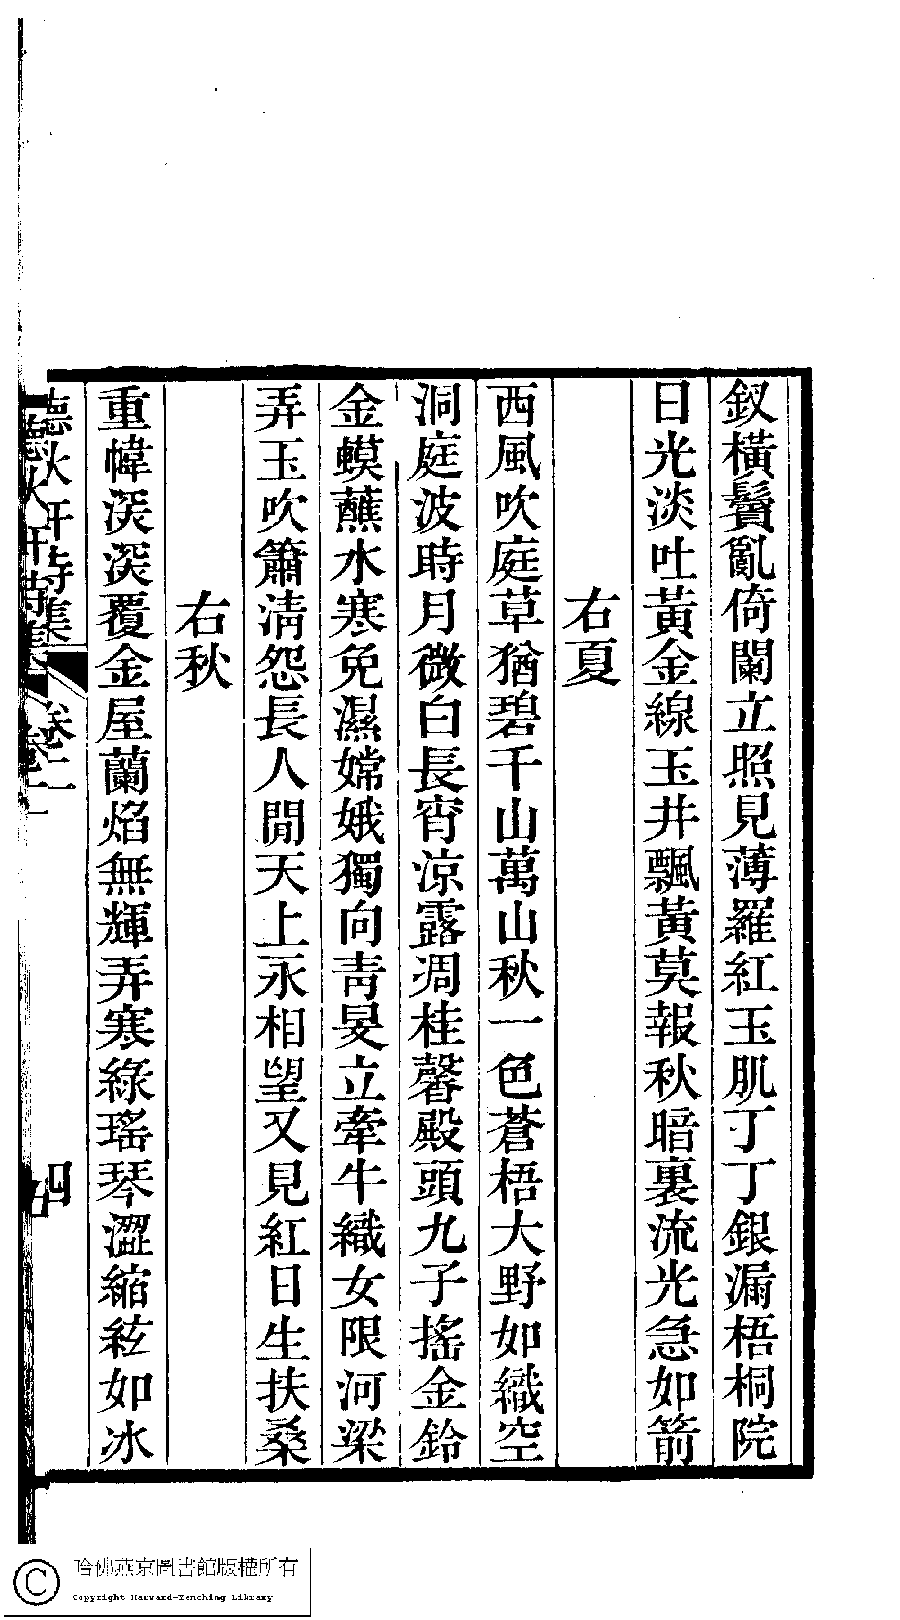 釵橫鬢亂倚闌立照見薄羅紅玉肌丁丁銀漏梧桐院
日光淡吐黃金線玉井飄黃莫報秋暗裏流光急如箭
右夏
西風吹庭草猶碧千山萬山秋一色蒼梧大野如織空
洞庭波時月微白長宵涼露凋桂馨殿頭九子搖金鈴
金蟆蘸水寒免濕嫦娥獨向青旻立牽牛織女限河梁
弄玉吹簫淸怨長人閒天上永相望又見紅日生扶桑
右秋
重幃深深覆金屋蘭焰無輝弄寒綠瑤琴澀縮絃如冰
卷二
四
哈佛燕京圖書館版權所有
Copyright Harvard-Yenching Library